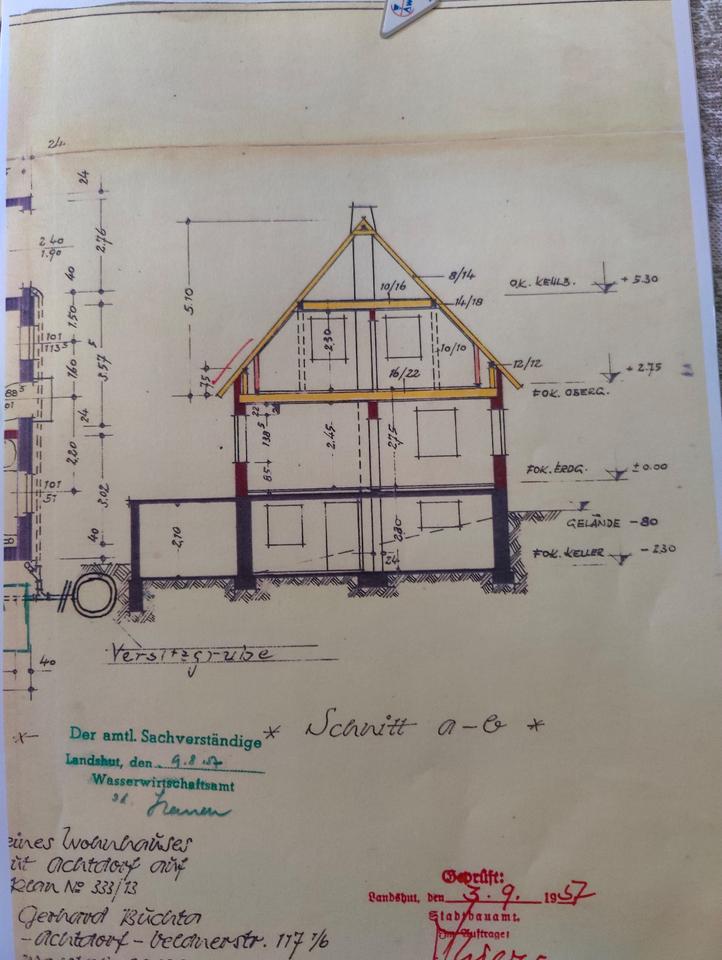 24
24
2.76
2 40
1.90
40
1.50
5
101
113⁵
1.60
3.57
88⁵
24
2.20
101
51
3.02
40
40
5.10
75
8/14
10/16
14/18
2.30
10/10
12/12
16/22
22
130⁵
85
2.45
2.75
2.10
24
O.K. KEHLB. + 5.30
+ 2.75
FOK. OBERG.
FOK. ERDG. ± 0.00
GELÄNDE - 80
FOK. KELLER - 2.30
Versitzgrube
* Schnitt a-b *
Der amtl. Sachverständige
Landshut, den 9.8.57
Wasserwirtschaftsamt
eines Wohnhauses
Achtdorf auf
Plan № 333/13
Gerhard Buchta
-Achtdorf - Veldnerstr. 117 1/6
Geprüft:
Landshut, den 3. 9. 1957
Stadtbauamt.
Im Auftrage: